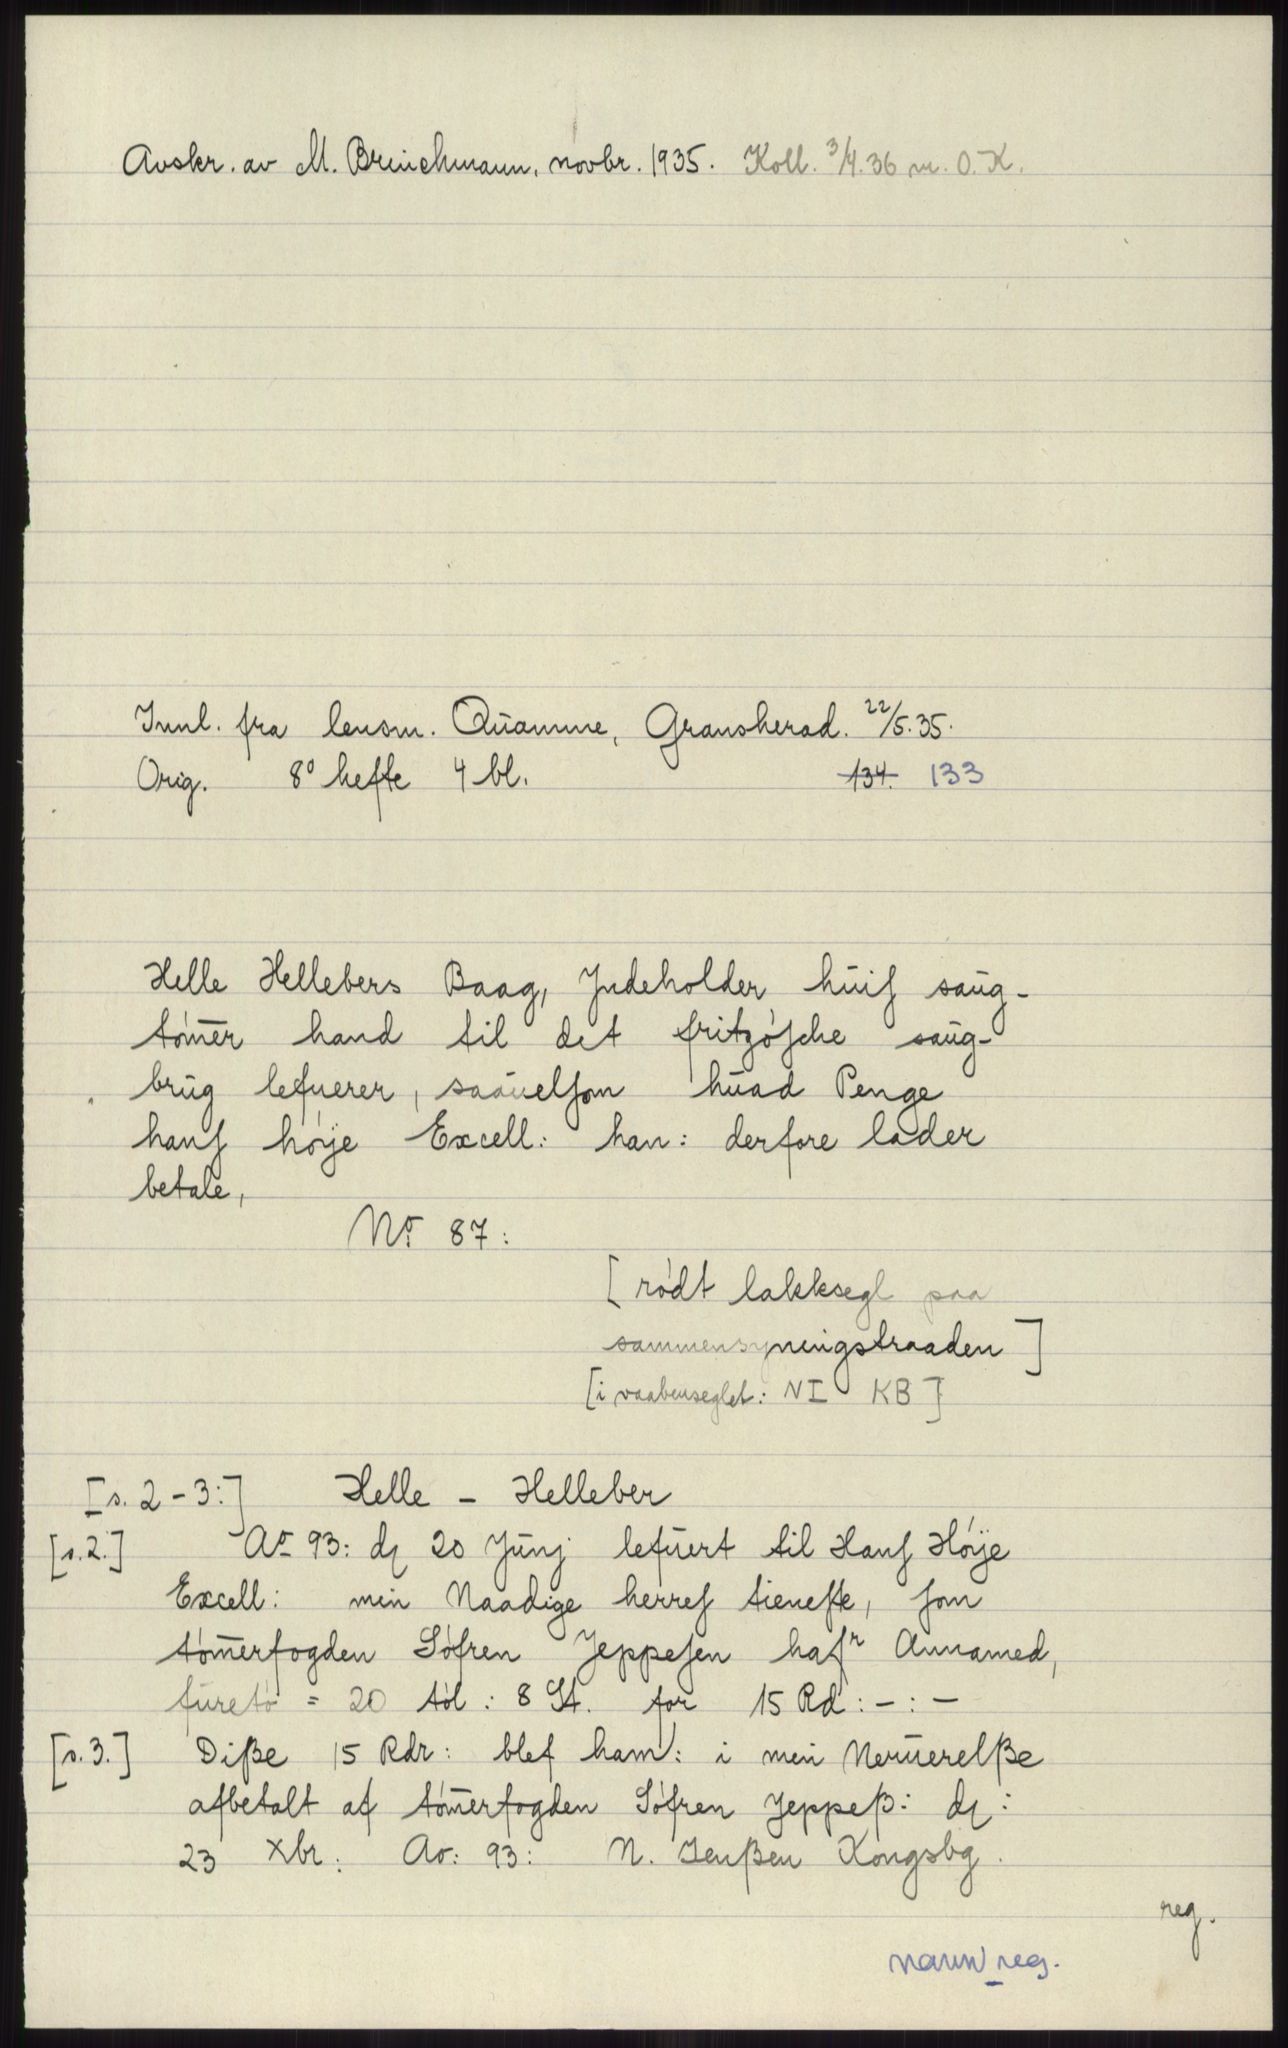 Avskr. av M. Brinchmann, novbr. 1935. Koll. 3/4.36 m. O. K.
Innl. fra lensm. Quamme, Gransherad. 22/5.35.
Orig. 8º hefte 4 bl. 134. 133
Helle Hellebers Baag, Jndeholder huis saug-
tømer hand til det fritzøsche saug-
brug lefuerer, saauelsom huad Penge
hans høije Excell: han: derfore lader
betale,
No 87:
[rødt lakksegl paa
sammensyningstraaden]
[i vaabenseglet: NI KB]
[s. 2-3:] Helle - Helleber
[s. 2.] Ao 93: dȝ 20 Junj lefuert til Hans Høije
Excell: min Naadige herres tieneste, som
tømerfogden Søfren Jeppesen hafr Annamed,
furetø = 20 tøl: 8 St. for 15 Rd: -:-
[s. 3.] Diße 15 Rdr: blef ham: i min Neruerelße
afbetalt af tømerfogden Søfren Jeppeß: dȝ:
23 Xbr: Ao: 93: N. Jenßen Kongsbg.
reg.
navn reg.